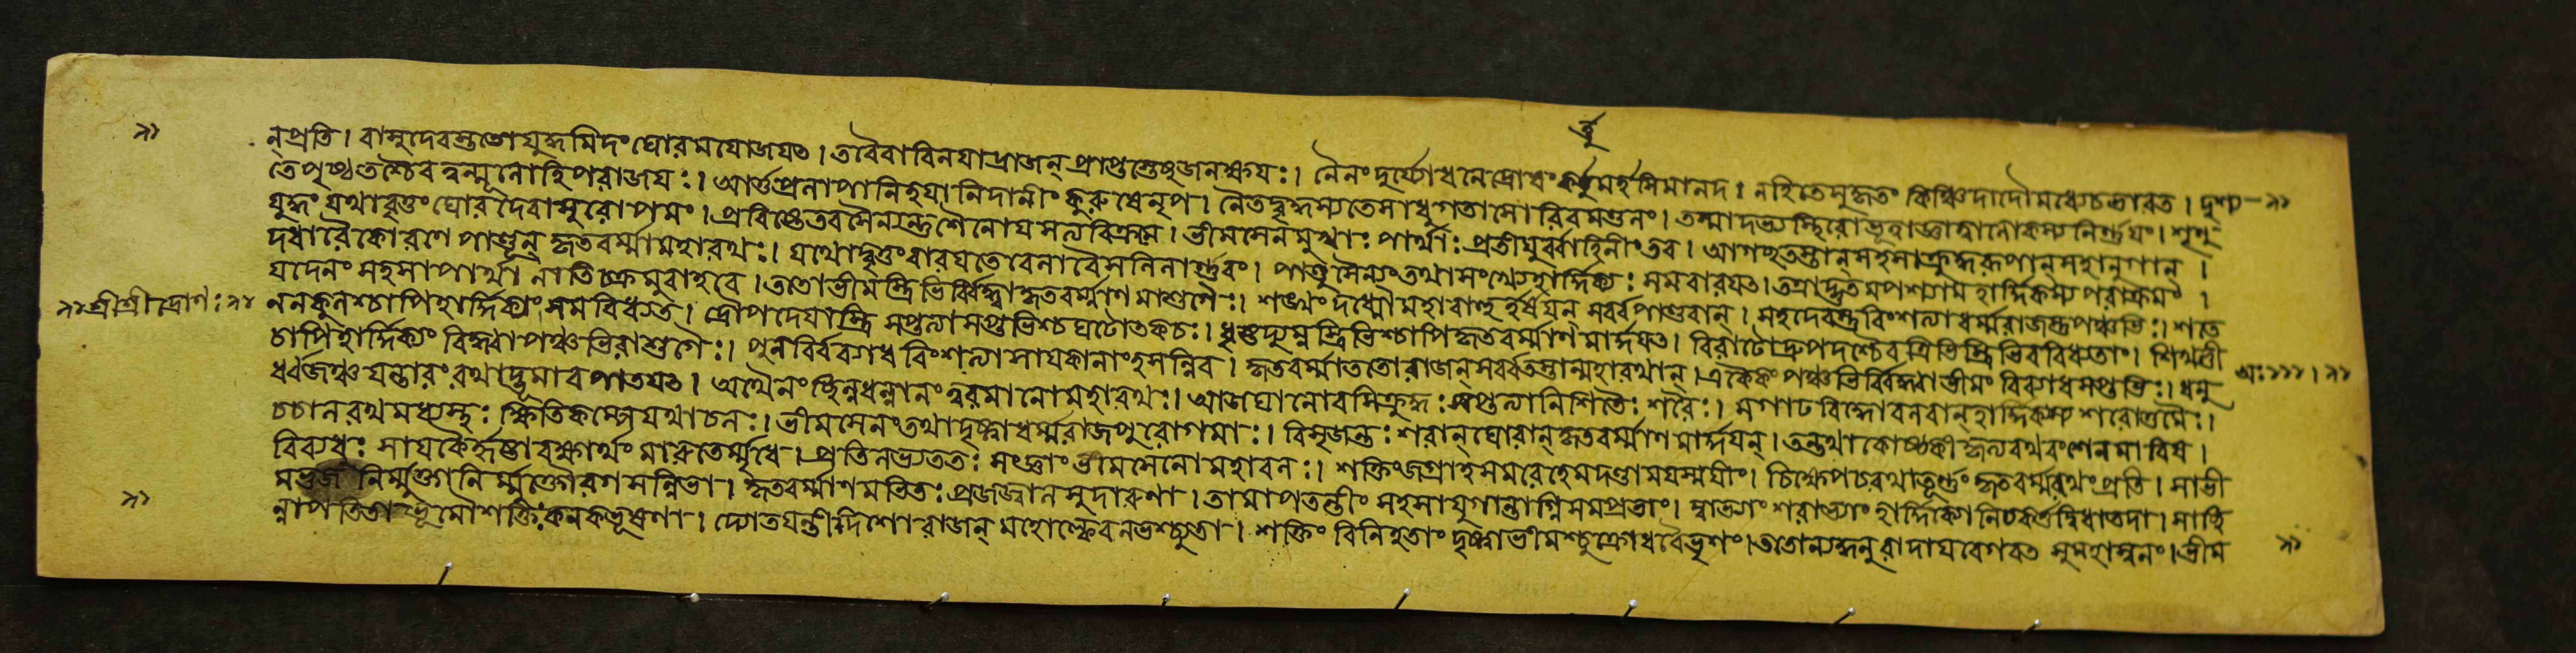 ন্প্রতি। বাসুদেবস্ততো যুদ্ধমিদং ঘোরমযোজযৎ। তবৈবাবিনযাদ্রাজন্ প্রাপ্তস্তেষুজনক্ষযঃ। নৈনং দুর্য্যোধনে দ্রোধং কর্ত্তুমর্হসিমানদ। নহিতে সুকৃতং কিঞ্চিদাদৌমধ্যেচভারত। দৃশ্য
তেপৃষ্ঠতশ্চৈব ত্বন্মূলোহিপরাজযঃ।
যুদ্ধং যথাবৃত্তং ঘোরং দৈবাসুরোপমং। প্রবিষ্টে তব সৈন্যন্তু শৈনেযে সত্যবিক্রমে। ভীমসেনমুখাঃ পার্থাঃ প্রতীযুর্ব্বাহিনীং তব। আগচ্ছতস্তান্ সহসা ক্রুদ্ধরূপান্ সহানুগান্।
দধারৈকোরণে পাণ্ডূন্ কৃতবর্ম্মামহারথঃ। যথোদ্বৃত্তং বারযতে বেলাবৈ সলিলার্ণবং। পাণ্ডুসৈন্যং তথা সংখ্যে হার্দ্দিক্যঃ সমবারযৎ। তত্রাদ্ভুতমপশ্যাম হার্দ্দিক্যস্য পরাক্রমং।
যদেনং সহসাপার্থা নাতিচক্রমুরাহবে। ততোভীমস্ত্রিভির্বিদ্ধ্বা কৃতবর্ম্মাণমাশুগৈঃ। শঙ্খং দধ্মৌ মহাবাহু র্হর্ষযন্ সর্ব্বপাণ্ডবান্। সহদেবস্তু বিংশত্যা ধর্ম্মরাজস্তু পঞ্চভিঃ। শতে
শ্রীশ্রীদ্রোণঃ নকুলশ্চাপি হার্দ্দিক্যং সমবিধ্যত। দ্রৌপদেযাস্ত্রিসপ্তত্যা সপ্তভিশ্চ ঘটোৎকচঃ। ধৃষ্টদ্যুম্নস্ত্রিভিশ্চাপি কৃতবর্ম্মাণমার্দ্দযৎ। বিরাটোদ্রুপদশ্চৈব শিখণ্ডী
চাপি হার্দ্দিক্যং বিদ্ধ্বা পঞ্চভিরাশুগৈঃ। পুনর্ব্বিব্যাধ বিংশত্যা সাযকানাং হসন্নিব। কৃতবর্ম্মা ততো রাজন্ সর্ব্বতস্তান্মহারথান্। একৈকং পঞ্চভির্বিদ্ধ্বা ভীমং বিব্যাধ সপ্তভিঃ। ধনু
র্ধ্বজঞ্চ রথাদ্ভূমাবপাতযৎ। অথৈনং ছিন্নধন্বানং ত্বরমাণো মহারথঃ। আজঘানোরসি ক্রুদ্ধঃ সপ্তত্যা নিশিতৈঃ শরৈঃ। সগাঢবিদ্ধো বলবান্ হার্দ্দিক্যস্য শরোত্তমৈঃ।
চচাল রথমধ্যস্থঃ ক্ষিতিকম্পে যথাচলঃ। ভীমসেনং তথা দৃষ্ট্বা ধর্ম্মরাজপুরোগমাঃ। বিসৃজন্তঃ শরান্ ঘোরান্ কৃতবর্ম্মাণমার্দ্দযন্। তন্তথা কোষ্ঠকীকৃত্য রথবংশেন মারিষ।
বিব্যধুঃ সাযকৈর্হৃষ্টা রক্ষার্থং মারুতের্ম্মৃধে। প্রতিলভ্য ততঃ সংজ্ঞাং ভীমসেনো মহাবলঃ। শক্তিং জগ্রাহ সমরে হেমদণ্ডামযস্মযীং। চিক্ষেপ চ রথাত্তূর্ণং কৃতবর্ম্মরথং প্রতি। সাভী
মভুজ নির্ম্মুক্তা নির্ম্মুক্তোরগসন্নিভা। কৃতবর্ম্মাণমভিতঃ প্রজজ্বাল সুদারুণা। তামাপতন্তীং সহসা যুগান্তাগ্নিসমপ্রভাং। দ্বাভ্যাং শরাভ্যাং হার্দ্দিক্যো নিচকর্ত্ত দ্বিধা তদা। সাছি
ন্নাপতিতাভূমৌ শক্তিঃ কনকভূষণা। দ্যোতযন্তী দিশো রাজন্ মহোল্কেব নভশ্চ্যুতা। শক্তিং বিনিহতাং দৃষ্ট্বা ভীমশ্চুক্রোধবৈভৃশং। ততোন্যদ্ধনুরাদায বেগবত সুমহাস্বনং। ভীম